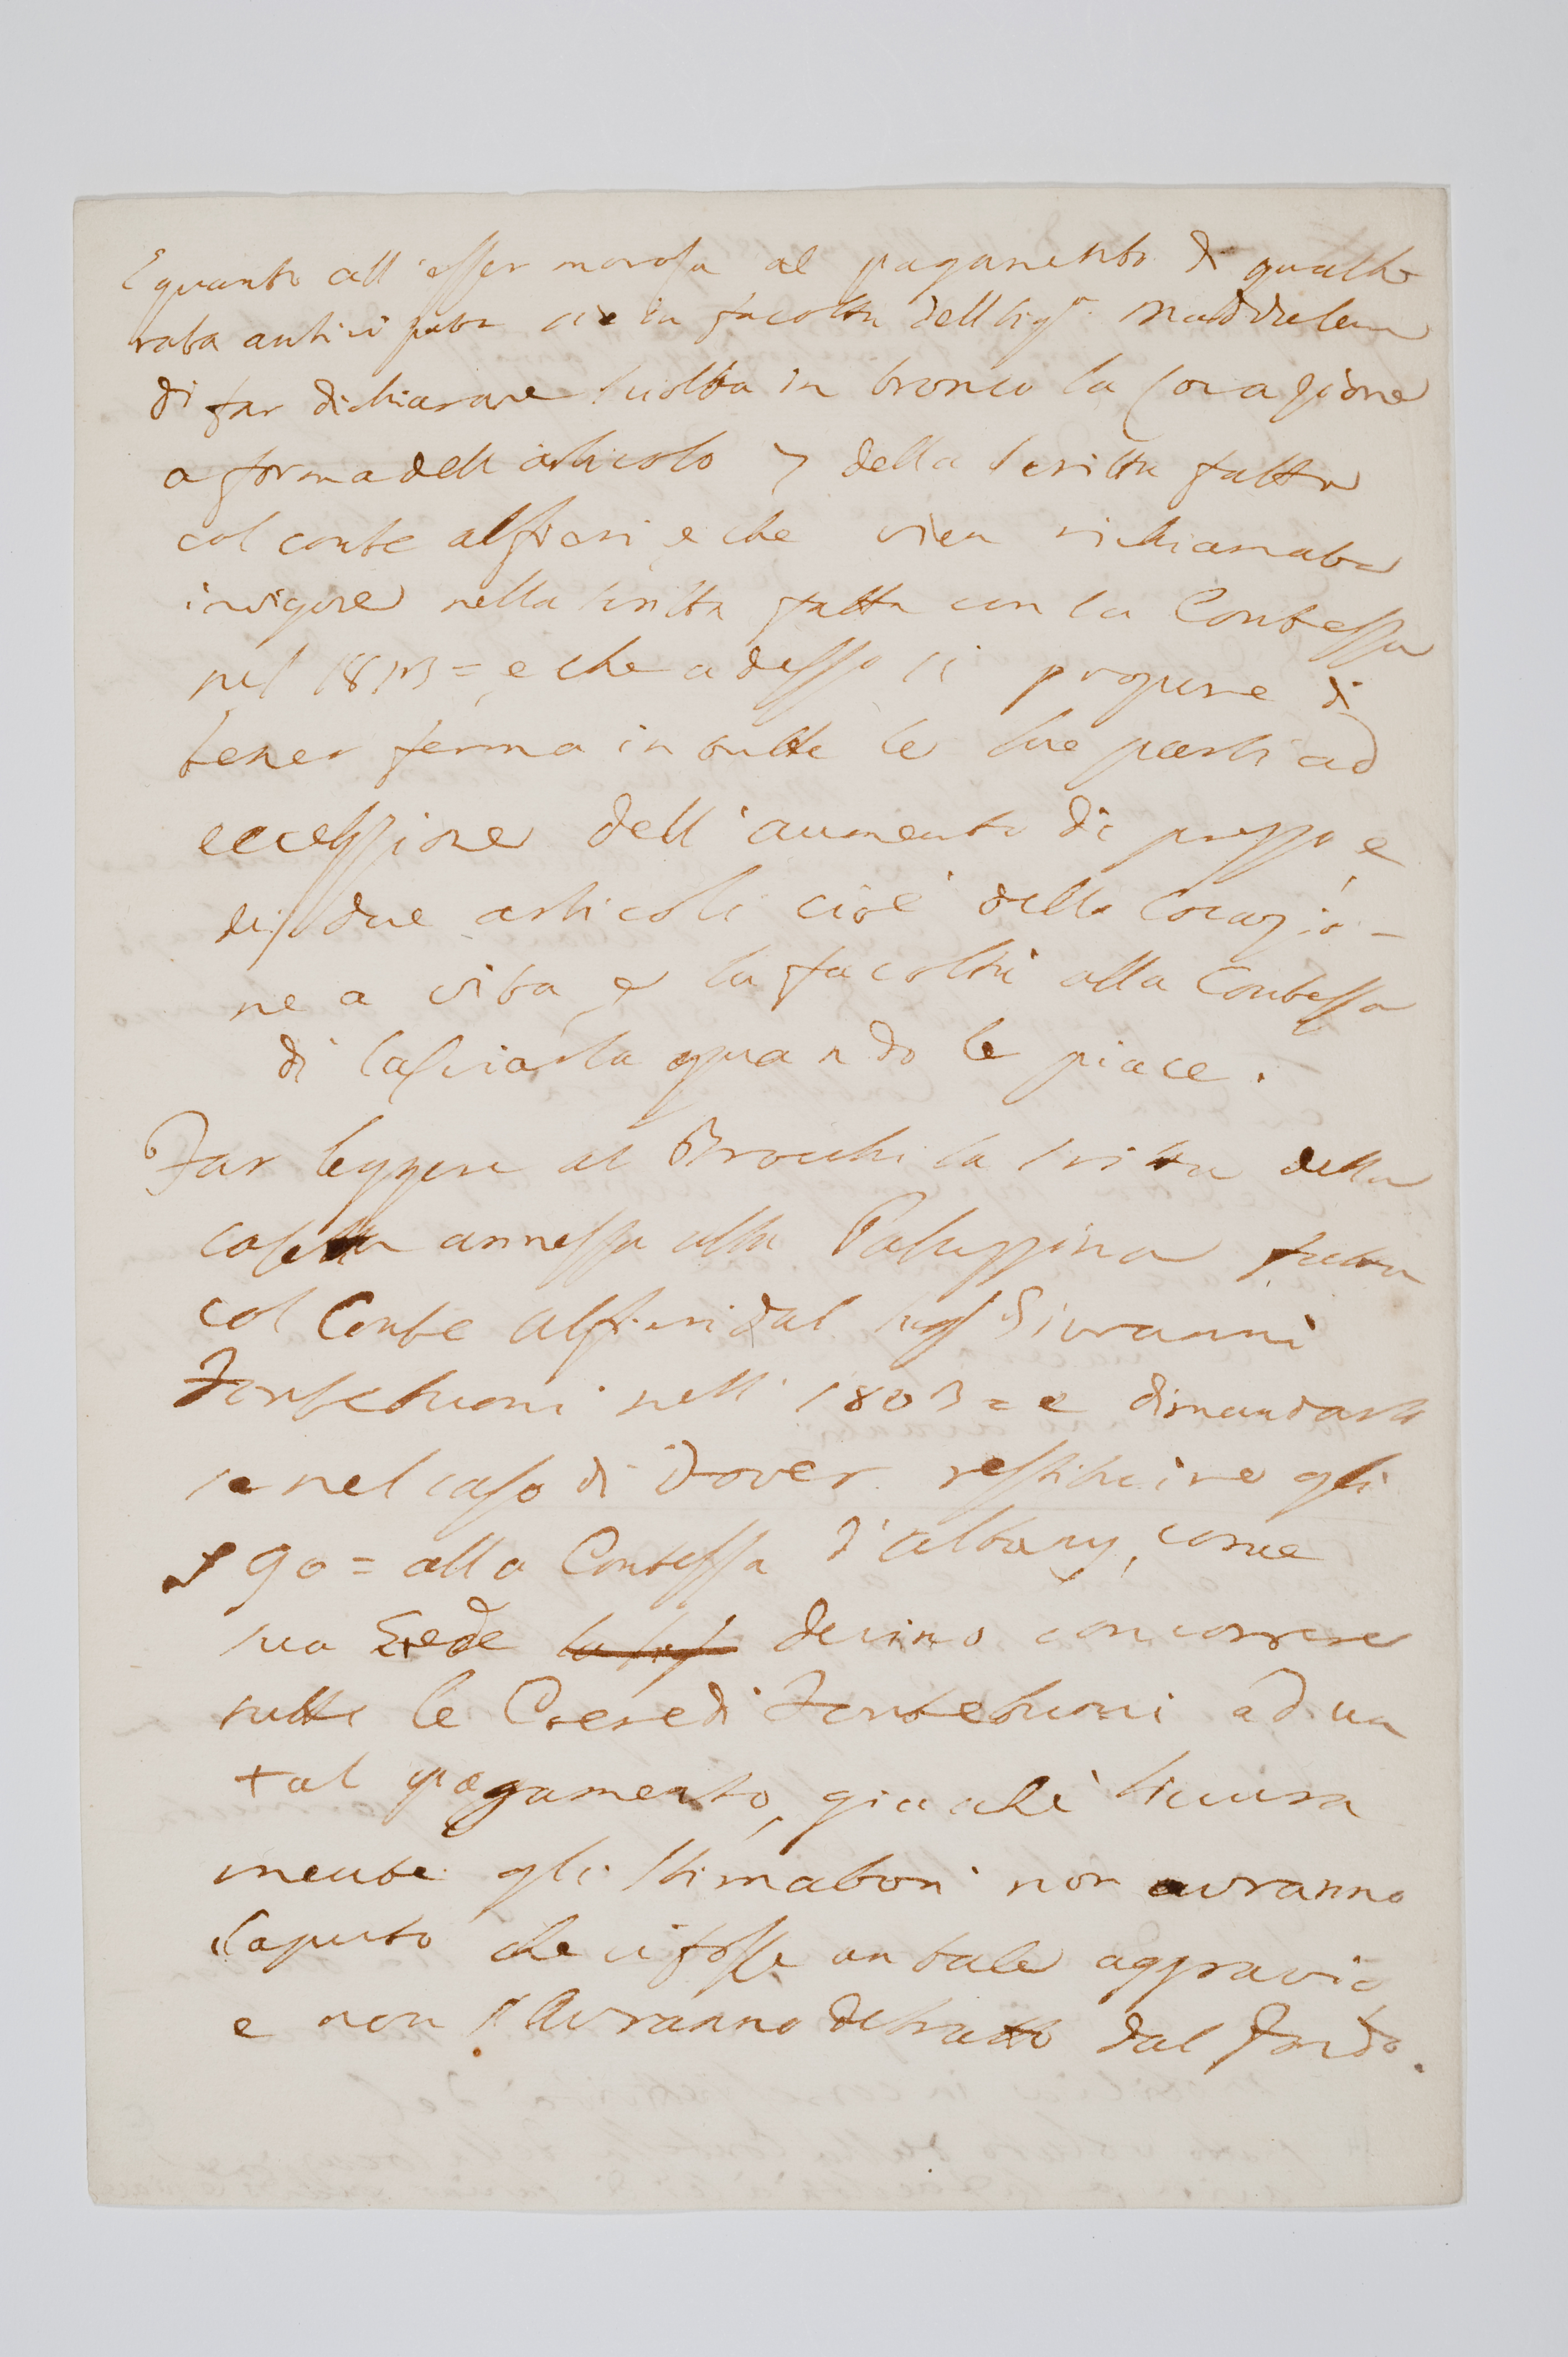 E quanto all'esser morosa al pagamento di qualche
rata anticipata ci è la facoltà della Sigra Maddalena
di far dichiarare sciolta in tronco la locazione
a forma dell articolo 7 della scritta fatta
col conte alfieri e che vien richiamata
in vigore nella scritta fatta con la Contessa
nel 1813 = e che adesso si propone di
tener ferma in tutte le sue parti ad
eccezzione dell'aumento di prezzo e
di due articoli cioè della locazio-
ne a vita e la facoltà alla Contessa
di lasciarla quando le piace.
Far leggere al Brocchi la scritta della
casetta annessa alla Paluzzina fatta
col Conte alfieri dal Giovanni
Fontebuoni nell' 1803 = e dimandarli
se nel caso di dover restituire gli
90 = alla Contessa d'albany, come
sua Erede devino concorrere
tutte le Coeredi Fontebuoni ad un
tal pagamento, giacchè sicura
mente gli stimatori non avranno
saputo che ci fosse un tale aggravio
e non l'avranno detratto dal fondo.